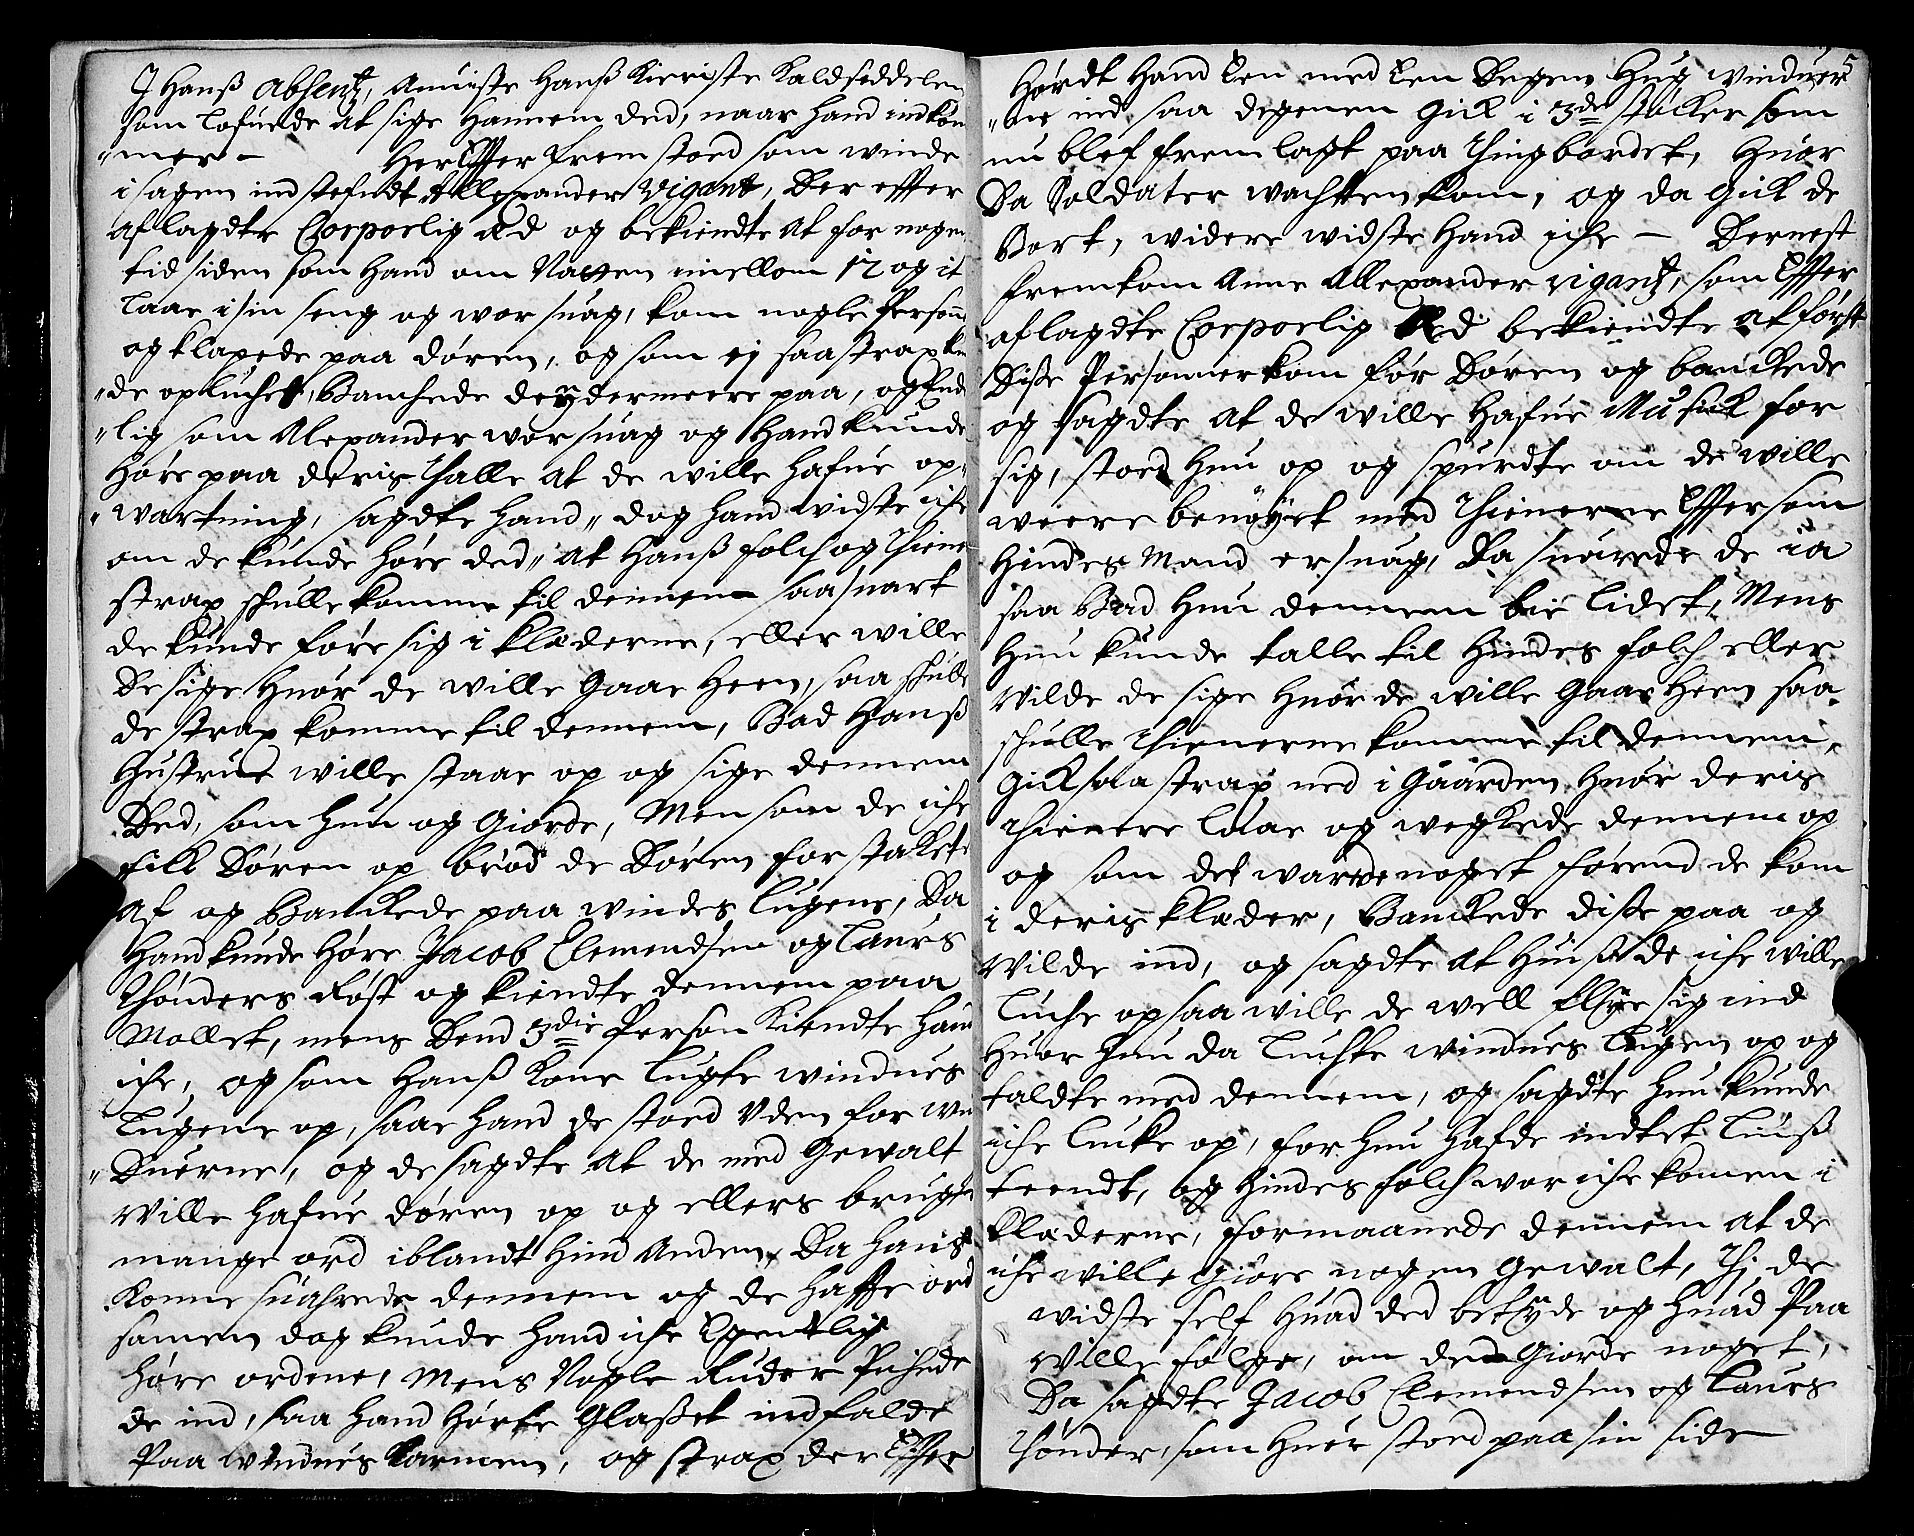 J Hanß Absentz, Anviste Hanß Kieriste Kaldseddelen
som lofuede at sige Hannem ded, naar hand indkom
"mer – Her Effter frem stoed som winde
i sagen indstefndt Allexander Vigantz, Der effter
aflagdte Corporlig Æd og bekiendte at for nogen
tid siden som hand om Natten imellom 12 og it
laae i sin seng og wor suag, kom nogle Persohner
og klapede paa døren, og som ej saa strax ble
"de opluchet, Banchede de ydermeere paa, og Ende
"lig som Alexander wor suag og Hand kunde
høre paa deris Thalle at de wille hafue op-
"wartning, sagdte hand, dog hand widste iche
om de kunde høre ded, at Hanß folch og Thiene
strax skulle komme til dennem saa snart
de kunde føre sig i klæderne, eller wille
De sige huor de wille Gaae Heen, saa skulle
de strax komme til dennem, Bad Hanß
Hustrue wille staae op og sige dennem
Ded, som hun og Giorde, Men som de iche
fick Døren op brød de Døren for staket
af og Banckede paa windes lugene, Da
Hand kunde høre Jacob Clemendsen og Laurs
Thønders Røst og kiendte dennem paa
Mællet, mens Dend 3die Person kiendte hand
iche, og som Hanß kone lugte windues
Lugene op, saae hand de stoed Uden for win
"Duerne, og de sagdte at de med Gewalt
Wille hafue døren op og ellers brugte
mange ord iblandt hin Anden, Da Hanß
Konne suarede dennem og de haffte ord
samen dog kunde hand iche Egentlig
høre ordene, Mens Nogle Ruder
de ind, saa hand hørte Glaßet indfalde
Paa windues karmen, og strax der Effter
5
Hørdt hand Een med Een Degen Hug winduer
"ne ind saa degenen gik i 3de støcker som
nu blef frem lagt paa Thingbordet, Huor
Da Soldater wachten kom, og da gick de
Bort, widere widste hand iche – Dernest
fremkom Anne Allexander Vigantz, som Effter
aflagdte Corporlig Æd bekiendte at først
Diße Personner kom før Døren og banckede
og sagdte at de wille hafue Musick for
sig, stoed hun op og spurdte om de wille
weere benøyet med Thienerne Effter som
Hindes Mand er suag, Da suarede de ia
saa Bad hun dennem bie lidet, Mens
Hun kunde talle til Hindes folch eller
Wilde de sige huor de wille Gaae Heen saa
skulle Thienerne komme til dennem,
Gick saa strax ned i Gaarden huor deris
Thienere laae og wegkede dennem op
og som det warede noget førend de kom
i deris klæder, Banckede diße paa og
Wilde ind, og sagdte at huiß de iche wille
luche op saa wille de well flye sig ind
Huor hun da luchte windues lugen op og
taldte med dennem, og sagdte hun kunde
iche lucke op, for hun hafde intet Liuß
teendt, og Hindes folch wor iche komen i
Klæderne, formaanede dennem at de
iche wille Giøre nogen Gewalt, Thj de
widste self huad ded betyde og huad Paa
Wille følge, om de Giorde noget,
Da sagdte Jacob Clemendsen og Laurs
Thønder, som huer stoed paa sin side